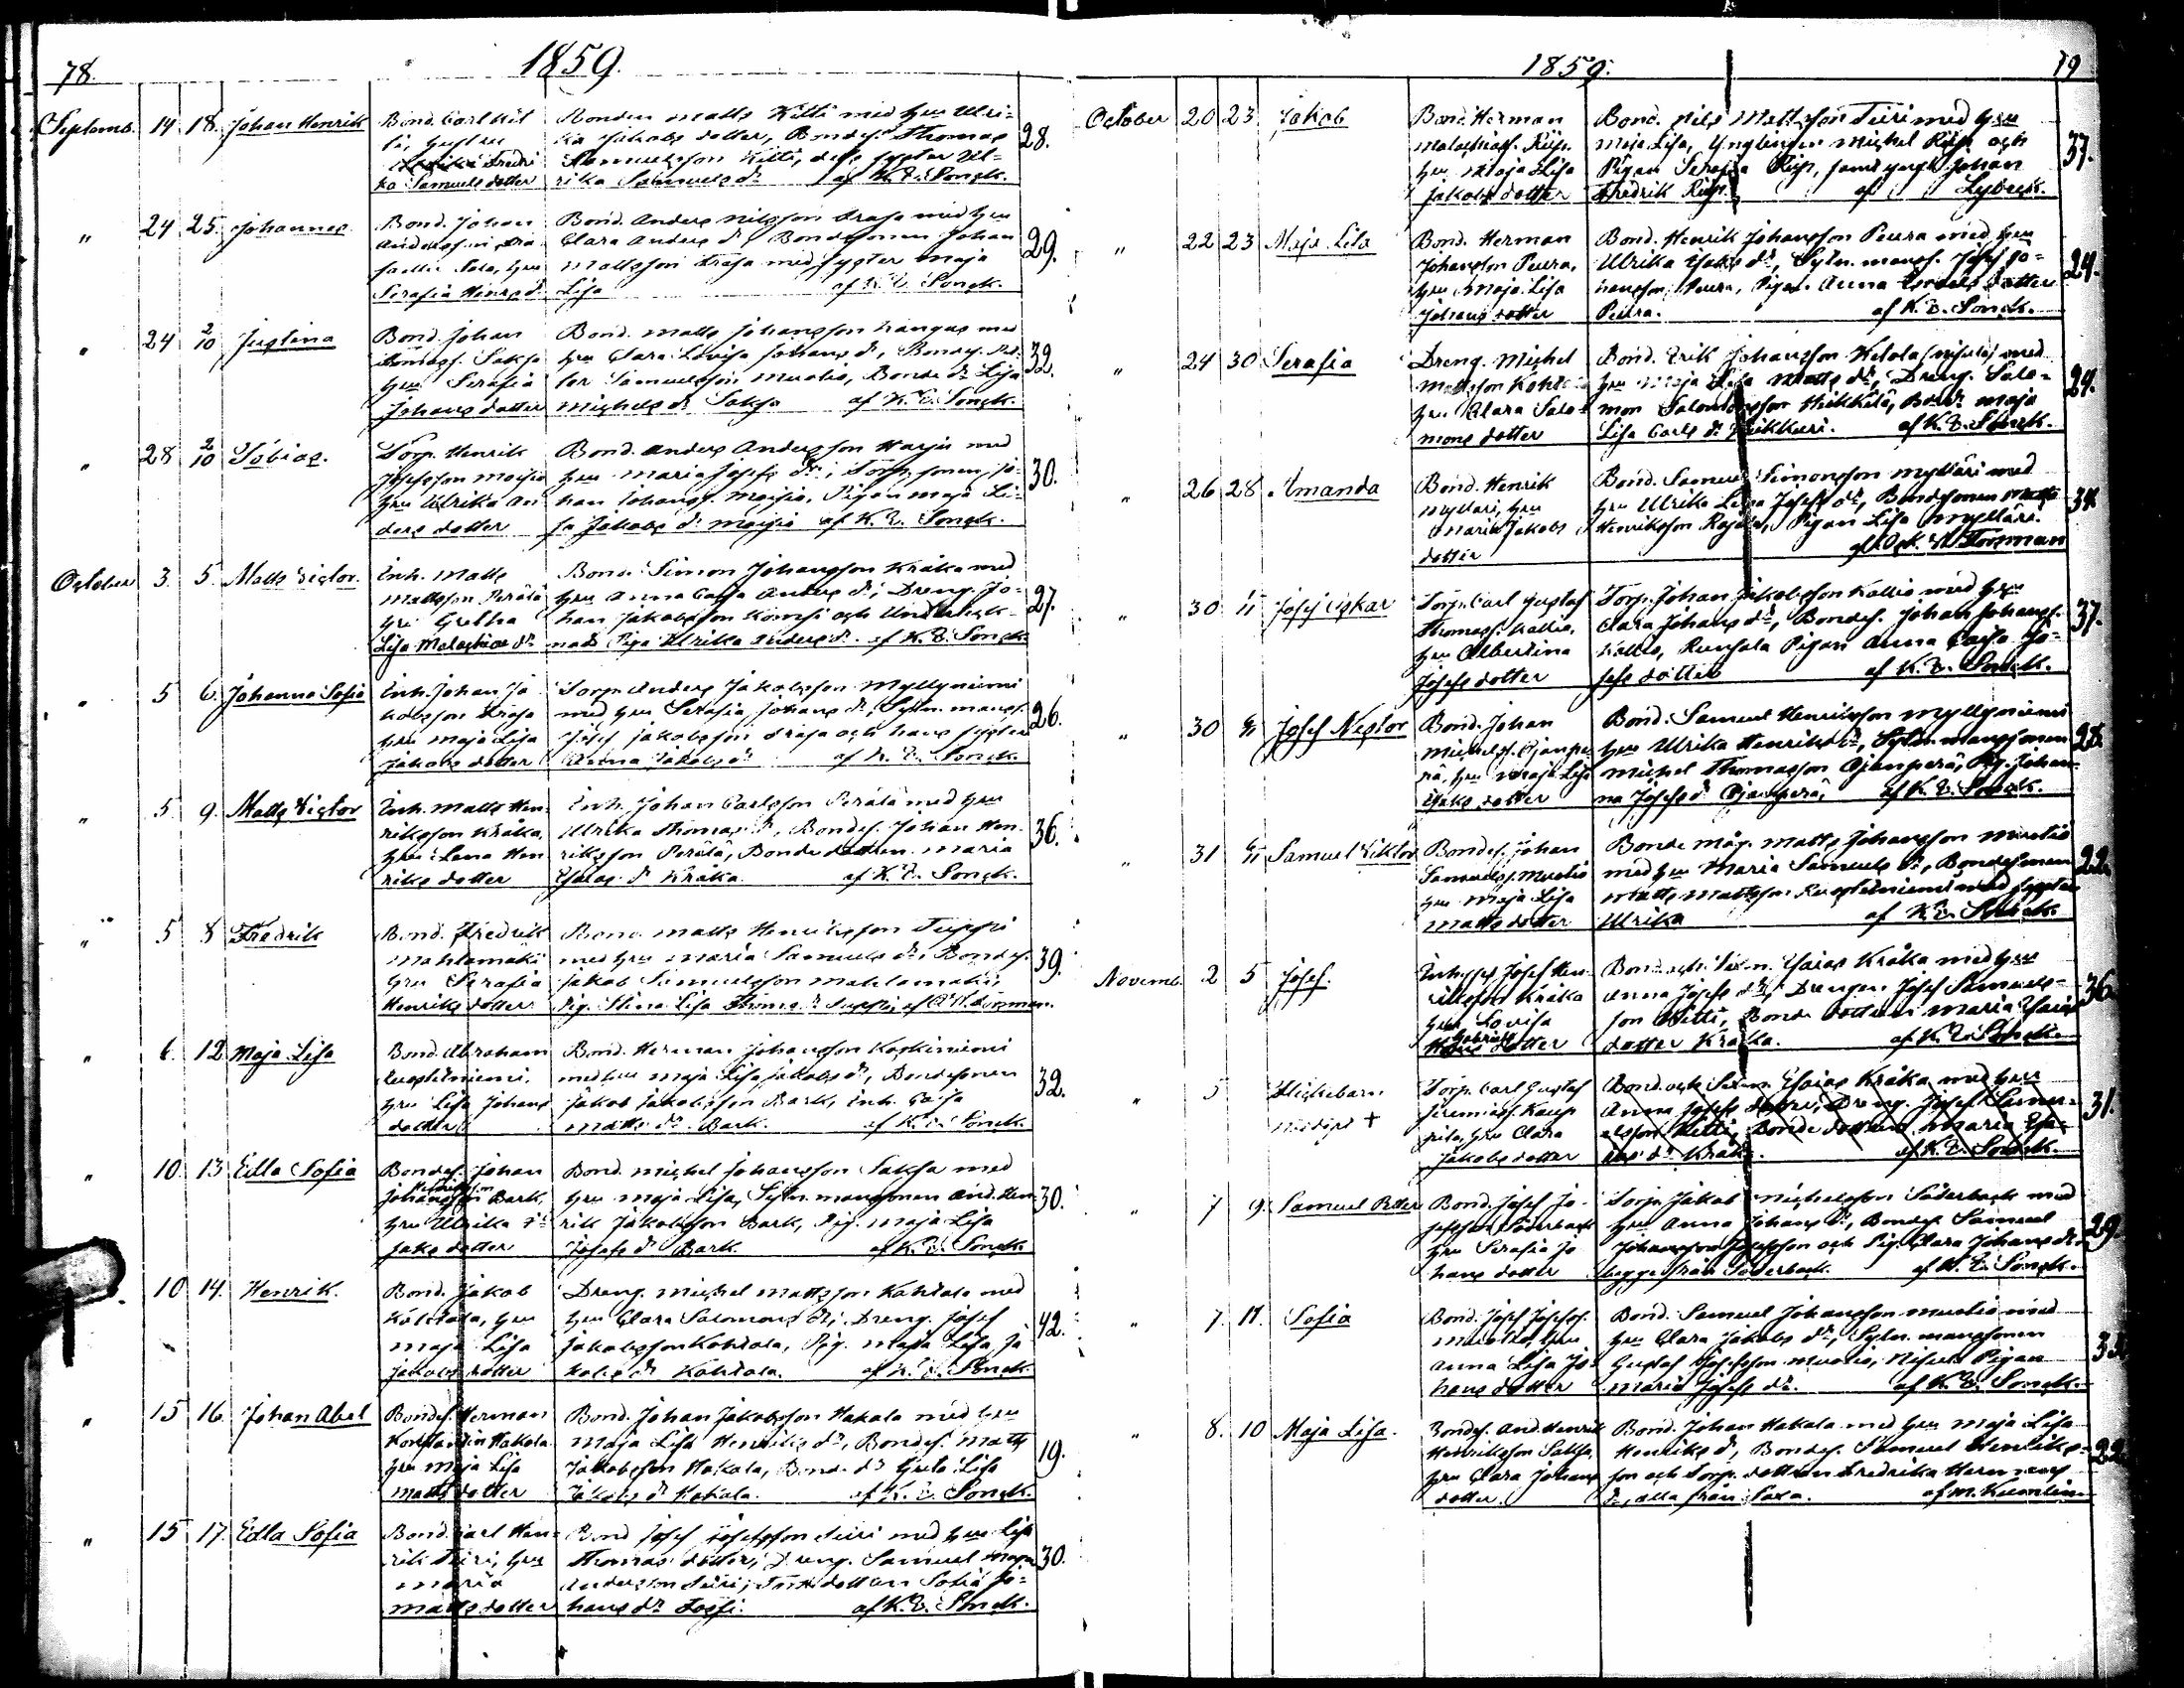 78.
1859.
Septemb. 14 18. Johan Henrik
Bond. Carl Kit
ti, hustru
Fredri
ka Samuels dotter
Bonden Matts Kitti med hru Ulri-
ka Jakobs dotter, Bondes. Thomas
Samuelsson Kitti, dess syster Ul-
rika Samuels dr af K. E. Sonck.
28.
" 24 25 Johannes
Bond. Johan
Andersson
hru
Serafia Henrs dr
Bond. Anders Nilsson Krasa med hru
Clara Anders dr, Bondesonen Johan
Mattsson Krasa med syster Maja
Lisa af K. E. Sonck.
29.
" 24 2/10 Justina
Bond. Johan
Saksa
hru Serafia
Johans dotter
Bond. Matts Johansson Kangas med
hru Clara Lovisa Johans dr, Bondes. Pet-
ter Samuelsson Muotio, Bonde dr Lisa
Michels dr Saksa af K. E. Sonck.
32.
" 28 2/10 Tobias.
Torp. Henrik
Josefsson Moisio
hru Ulrika An
ders dotter
Bond. Anders Andersson Harju med
hru Maria Josefs dr, Torp. sonen Jo-
han Johanss. Moisio, Pigan Maja Li-
sa Jakobs dr Moisio af K. E. Sonck.
30.
October 3. 5. Matts Victor.
Inh. Matts
Mattsson Perälä
hru Gretha
Lisa Malachias dr
Bond. Simon Johansson Kråka med
hru Anna Caisa Anders dr, Dreng. Jo-
han Jakobsson Komsi och
Piga Ulrika Anders dr. af K. E. Sonck.
27.
" 5 6. Johanna Sofia
Inh. Johan Ja
kobsson Krasa
hru Maja Lisa
Jakobs dotter
Torp. Anders Jakobsson Myllyniemi
med hru Serafia Johans dr, Sytn. manss.
Josef Jakobsson Krasa och hans syster
Anna Jakobs dr af K. E. Sonck.
26.
" 5 9. Matts Victor
Inh. Matts Hen
riksson Kråka,
hru Lena Hen
riks dotter
Inh. Johan Carlsson Perälä med hru
Ulrika Thomas dr, Bondes. Johan Hen-
riksson Perälä, Bonde dottren Maria
Esaias dr Kråka. af K. E. Sonck.
36.
" 5 8 Fredrik
Bond. Fredrik
Mahlamäki
hru Serafia
Henriks dotter
Bond. Matts Henriksson Turppi
med hru Maria Samuels dr, Bondes.
Jakob Samuelsson Mahlamäki,
Pig. Stina Lisa Thoms dr
39.
" 6. 12 Maja Lisa
Bond. Abraham
hru Lisa Johans
dotter
Bond. Herman Johansson Koskiniemi
med hru Maja Lisa Jakobs dr, Bondesonen
Jakob Jakobsson Bark, Inh. Caisa
Matts dr Bark. af K. E. Sonck.
32.
" 10. 13 Edla Sofia
Bondes. Johan
Henriksson
Johansson Bark,
hru Ulrika I
saks dotter
Bond. Michel Johansson Saksa med
hru Maja Lisa, Sytn. manssonen And. Hen
rik Jakobsson Bark, Pig. Maja Lisa
Josefs dr Bark. af K. E. Sonck.
30.
10 14. Henrik.
Bond. Jakob
Kohtala, hru
Maja Lisa
Jakobs dotter
Dreng. Michel Mattsson Kohtala med
hru Clara Salomons dr, Dreng. Josef
Jakobsson Kohtala, Pig. Maja Lisa Ja
kobs dr Kohtala. af K. E. Sonck.
42.
" 15 16. Johan Abel
Bondes. Herman
Konstantin Hakala
hru Maja Lisa
Matts dotter
Bond. Johan Jakobsson Hakala med hru
Maja Lisa Henriks dr, Bondes. Matts
Jakobsson Hakala, Bonde dr Greta Lisa
Jakobs dr Hakala. af K. E. Sonck.
19.
" 15 17. Edla Sofia
Bond. Carl Hen-
rik Tiiri, hru
Maria
Matts dotter
Bond. Josef Josefsson Tiiri med hru Lisa
Thomas dotter, Dreng. Samuel
Andersson Tiiri, dottren Sofia Jo-
hans dr af K. E. Sonck.
30.
1859.
79
October 20 23 Jakob
Bond. Herman
Malachiass. Riip.
hru Maja Lisa
Jakobs dotter
Bond. Nils Mattsson Tiiri med hru
Maja Lisa, Ynglingen Michel Riip. och
Pigan Serafia Riip, samt yngl. Johan
Fredrik Riip. af Lybeck.
37.
" 22 23 Maja Lisa
Bond. Herman
Johansson Peura,
hru Maja Lisa
Johans dotter
Bond. Henrik Johansson Peura med hru
Ulrika Isaks dr, Sytn. manss. Josef Jo-
hansson Peura, Pigan Anna dotter
Peura. af K. E. Sonck.
24.
" 24 30 Serafia
Dreng. Michel
Mattsson Kohtala
hru Clara Salo-
mons dotter
Bond. Erik Johansson Kelola med
hru Maja Lisa Matts dr, Dreng. Salo-
mon Salomonsson Heikkilä, Bonde dr Maja
Lisa Carls dr Heikkuri. af K. E. Sonck.
29.
" 26 28 Amanda
Bond. Henrik
Mylläri, hru
Maria Jakobs
dotter
Bond. Samuel Simonsson Mylläri med
hru Ulrika Lena Josefs dr, Bondesonen Matts
Henriksson Rajala, Pigan Lisa Mylläri.
af O. K. W. Forsman
34
" 30 1/11 Josef Oskar
Torp. Carl Gustaf
Thomass. Kallio,
hru Albertina
Josefs dotter
Torp. Johan Jakobsson Kallio med hru
Clara Johans dr, Bondes. Johan Johanss.
Kallio, Pigan Anna Caisa Jo-
sefs dotter af K. E. Sonck.
37.
" 30 Josef Nestor
Bond. Johan
Michelss. Ojanpe
rä, hru Maja Lisa
Isaks dotter
Bond. Samuel Henriksson Myllyniemi
hru Ulrika Henriks dr, Sytn. manssonen
Michel Thomasson Ojanperä, Pig. Johan-
na Josefs dr Ojanperä, af K. E. Sonck.
28.
" 31 Samuel Viktor
Bondes. Johan
Samuelss. Muotio
hru Maja Lisa
Matts dotter
Bonde måg. Matts Johansson Muotio
med hru Maria Samuels dr, Bondesonen
Matts Mattsson med syster
Ulrika af K. E. Sonck.
22.
Novemb. 2 5 Josef.
Inhyses Josef Hen-
riksson Kråka
hru Lovisa
Gabriels
dotter
Bond. och Sexm. Esaias Kråka med hru
Anna Josefs dr, Drengen Josef Samuels-
son Kitti, Bonde dottren Maria Esaias
dotter Kråka. af K. E. Sonck.
36.
" 5 Flickebarn
nödöpt +
Torp. Carl Gustaf
Jeremiass. Kaup
pila, hru Clara
Jakobs dotter
Bond. och Sexm. Esaias Kråka med hru
Anna Josefs dotter, Dreng. Josef Samu-
elsson Kitti, Bonde dottren Maria Esa-
ias dr Kråka. af K. E. Sonck.
31.
" 7 9. Samuel Petter
Bond. Josef Jo-
sefsson Söderback
hru Serafia Jo
hans dotter
Torp. Jakob Michelsson Söderback med
hru Anna Johans dr, Bondes. Samuel
Josefsson och Pig. Clara Johans dr
begge från Söderback. af K. E. Sonck.
29.
" 7. 11. Sofia
Bond. Josef Josefss.
Muotio, hru
Anna Lisa Jo-
hans dotter
Bond. Samuel Johansson Muotio med
hru Clara Jakobs dr, Sytn. manssonen
Gustaf Josefsson Muotio, Pigan
Maria Josefs dr. af K. E. Sonck.
" 8. 10 Maja Lisa.
Bondes. And. Henrik
Henriksson Saksa,
hru Clara Johans
dotter.
Bond. Johan Hakala med hru Maja Lisa
Henriks dr, Bondes. Samuel Henriks-
son och Torp. dottren Fredrika Hermans
dr, alla från Saxa. af M. Kumlin
22